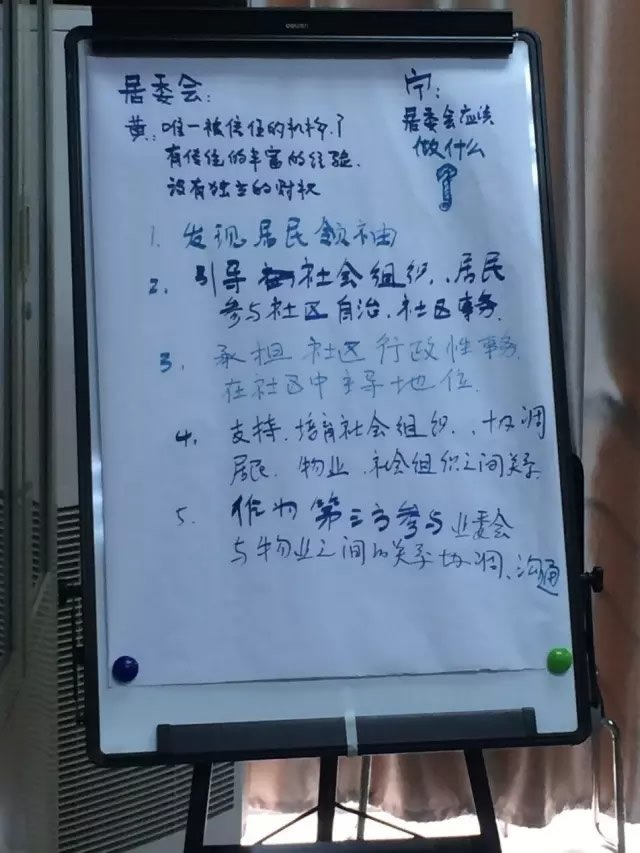 deli
居委会:
黄: 唯一被信任的机构?
有信任的丰富的经验.
没有独立的财权
宁:
居委会应该
做什么
1. 发现居民领袖
2. 引导社会组织、居民
参与社区自治、社区事务.
3. 承担社区行政性事务
在社区中主导地位.
4. 支持、培育社会组织、协调
居民、物业、社会组织之间关系
5. 作为第三方参与业委会
与物业之间的关系协调、沟通